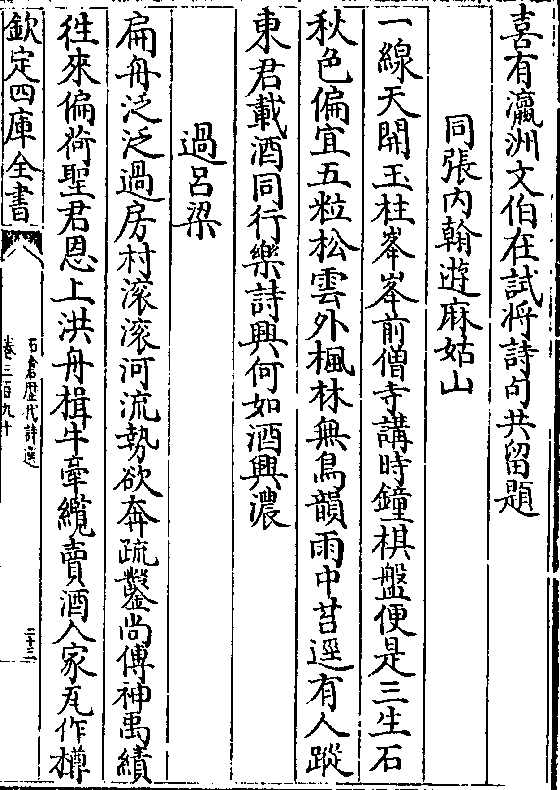 喜有瀛洲文伯在試將詩句共留題
同張内翰遊麻姑山
一線天開玉柱峯峯前僧寺講時鐘棋盤便是三生石
秋色偏宜五粒松雲外楓林無鳥韻雨中苔逕有人蹤
東君載酒同行樂詩興何如酒興濃
過吕梁
扁舟泛泛過房村滚滚河流勢欲奔疏鑿尚傳神禹績
徃來偏荷聖君恩上洪舟楫牛牽纜賣酒人家瓦作樽
欽定四庫全書
石倉歴代詩選
卷三百九十
二十三